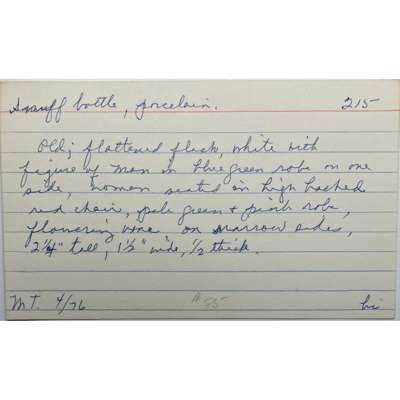 Snuff bottle, porcelain. 215
Old; flattened flask, white with
figure of man in blue green robe on one
side, woman seated in high backed
red chair, pale green + pink robe,
flowering vine on narrow sides,
2¼" tall, 1½" wide, ½ thick.
M.T. 4/76 #85